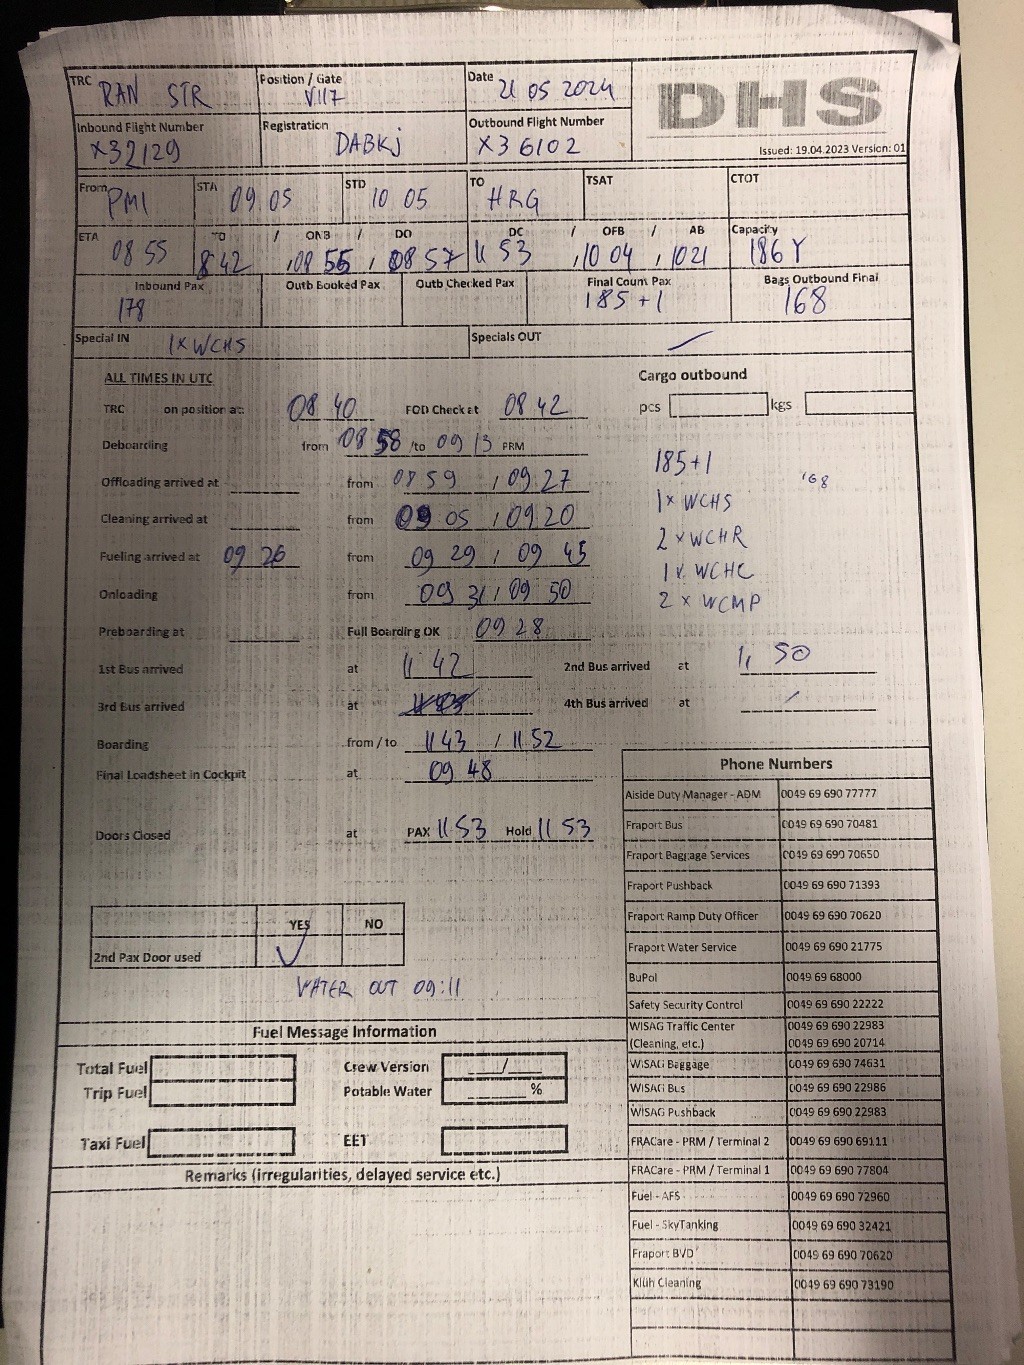 TRC RAN STR Position / Gate V117 Date 21 05 2024 DHS
Inbound Flight Number X32129 Registration DABKJ Outbound Flight Number X3 6102 Issued: 19.04.2023 Version: 01
From PMI STA 09 05 STD 10 05 TO HRG TSAT CTOT
ETA 08 55 TD 8 42 / ONB 08 55 / DO 08 57 DC 11 53 / OFB 10 04 / AB 1021 Capacity 186 Y
Inbound Pax 178 Outb Booked Pax Outb Checked Pax Final Count Pax 185 + 1 Bags Outbound Final 168
Special IN 1x WCHS Specials OUT
ALL TIMES IN UTC Cargo outbound
TRC on position at: 08 40 FOD Check at 08 42 pcs kgs
Deboarding from 08 58 /to 09 13 PRM
185+1 168
Offloading arrived at from 08 59 / 09 27
1x WCHS
Cleaning arrived at from 09 05 / 09 20
2 x WCHR
Fueling arrived at 09 26 from 09 29 / 09 45
1 x WCHC
Onloading from 09 31 / 09 50
2 x WCMP
Preboarding at Full Boarding OK 09 28
1st Bus arrived at 11 42 2nd Bus arrived at 11 50
3rd Bus arrived at 4th Bus arrived at
Boarding from / to 11 43 / 11 52
Final Loadsheet in Cockpit at 09 48
Doors Closed at PAX 11 53 Hold 11 53
YES NO
2nd Pax Door used
WATER OUT 09:11
Fuel Message Information
Total Fuel Crew Version /
Trip Fuel Potable Water %
Taxi Fuel EET
Remarks (irregularities, delayed service etc.)
Phone Numbers
Aiside Duty Manager - ADM 0049 69 690 77777
Fraport Bus 0049 69 690 70481
Fraport Baggage Services 0049 69 690 70650
Fraport Pushback 0049 69 690 71393
Fraport Ramp Duty Officer 0049 69 690 70620
Fraport Water Service 0049 69 690 21775
BuPol 0049 69 68000
Safety Security Control 0049 69 690 22222
WISAG Traffic Center 0049 69 690 22983
(Cleaning, etc.) 0049 69 690 20714
WISAG Baggage 0049 69 690 74631
WISAG Bus 0049 69 690 22986
WISAG Pushback 0049 69 690 22983
FRACare - PRM / Terminal 2 0049 69 690 69111
FRACare - PRM / Terminal 1 0049 69 690 77804
Fuel - AFS 0049 69 690 72960
Fuel - SkyTanking 0049 69 690 32421
Fraport BVD 0049 69 690 70620
Klüh Cleaning 0049 69 690 73190